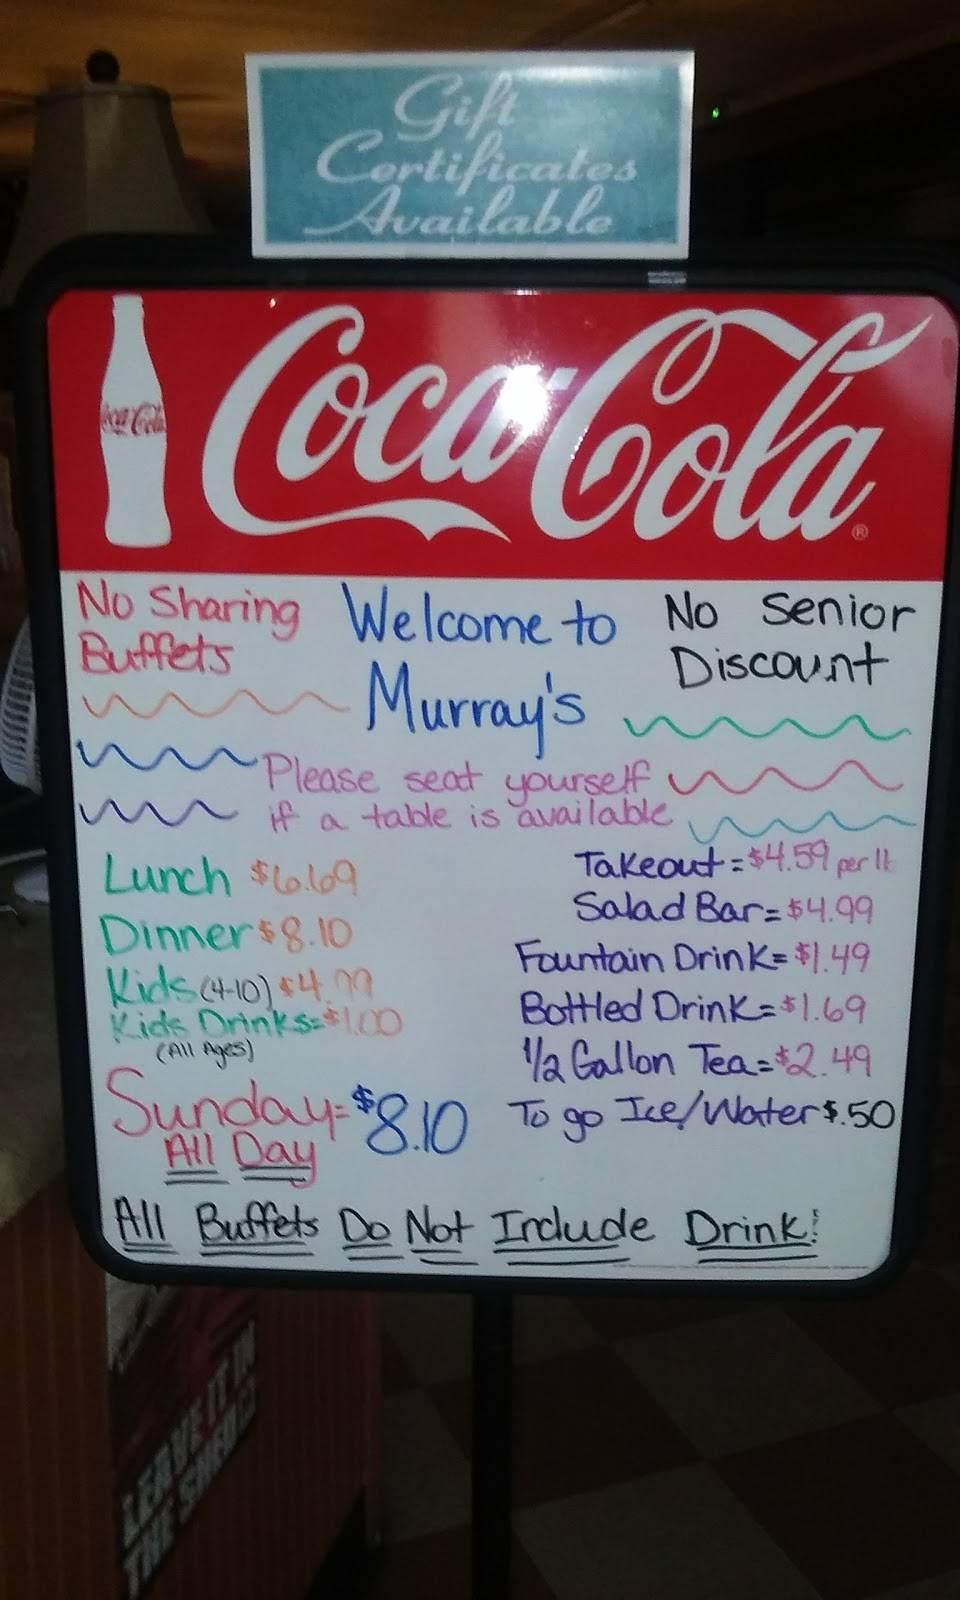 Gift
Certificates
Available
Coca-Cola
Coca-Cola®
No Sharing
Buffets
Welcome to
Murray's
No Senior
Discount
Please seat yourself
if a table is available
Lunch $6.69
Dinner $8.10
Kids (4-10) $4.99
Kids Drinks=$1.00
(All Ages)
Sunday=$8.10
All Day
Takeout=$4.59 per lb
Salad Bar=$4.99
Fountain Drink=$1.49
Bottled Drink=$1.69
1/2 Gallon Tea=$2.49
To go Ice/Water $.50
All Buffets Do Not Include Drink!
LEAVE IT IN
THE SHED